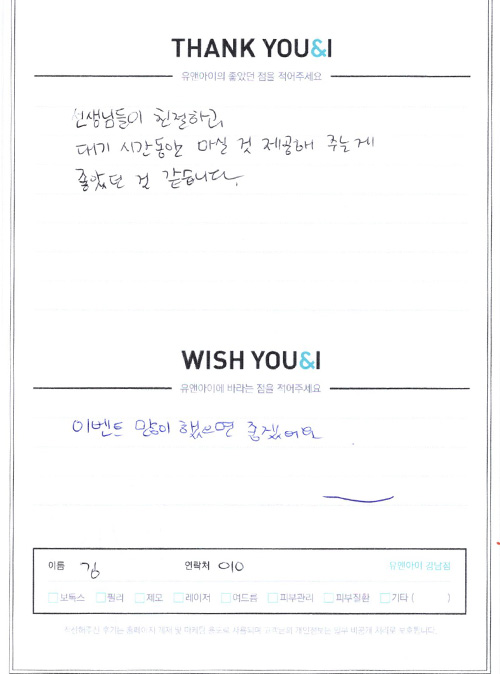 THANK YOU&I
유앤아이의 좋았던 점을 적어주세요
선생님들이 친절하고,
대기 시간동안 마실 것 제공해 주는게
좋았던 것 같습니다.
WISH YOU&I
유앤아이에 바라는 점을 적어주세요
이벤트 많이 했으면 좋겠어요
이름 김 연락처 010 유앤아이 강남점
보톡스 필러 제모 레이저 여드름 피부관리 피부질환 기타 ( )